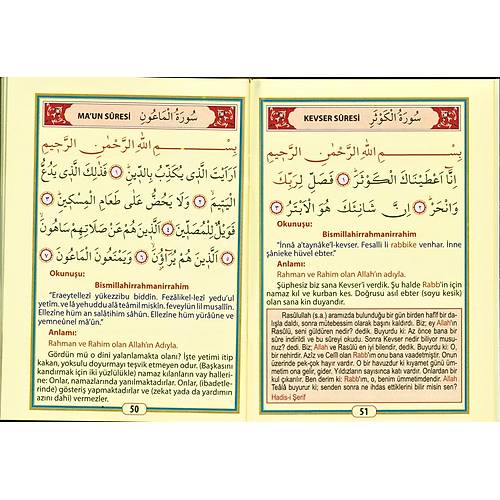 MA'UN SÛRESİ سُورَةُ الْمَاعُونِ
بِسْمِ اللهِ الرَّحْمٰنِ الرَّحِيمِ
اَرَاَيْتَ الَّذ۪ي يُكَذِّبُ بِالدّ۪ينِ ﴿١﴾ فَذٰلِكَ الَّذ۪ي يَدُعُّ
الْيَت۪يمَ ﴿٢﴾ وَلَا يَحُضُّ عَلٰى طَعَامِ الْمِسْك۪ينِ ﴿٣﴾
فَوَيْلٌ لِلْمُصَلّ۪ينَ ﴿٤﴾ اَلَّذ۪ينَ هُمْ عَنْ صَلَاتِهِمْ سَاهُونَ
﴿٥﴾ اَلَّذ۪ينَ هُمْ يُرَٓاؤُ۫نَ ﴿٦﴾ وَيَمْنَعُونَ الْمَاعُونَ ﴿٧﴾
Okunuşu:
Bismillahirrahmanirrahim
"Eraeytellezî yükezzibu biddin. Fezâlikel-lezî yedu'ul
yetîm. ve lâ yehuddualâ teâmil miskîn. feveylün lil musallîn.
Ellezîne hüm an salâtihim sâhûn. Ellezîne hüm yürâûne ve
yemneûnel mâ'ûn."
Anlamı:
Rahman ve Rahim olan Allah'ın Adıyla.
Gördün mü o dini yalanlamakta olanı? İşte yetimi itip
kakan, yoksulu doyurmayı teşvik etmeyen odur. (Başkasını
kandırmak için iki yüzlülükle) namaz kılanların vay halleri-
ne: Onlar, namazlarında yanılmaktadırlar. Onlar, (ibadetle-
rinde) gösteriş yapmaktadırlar ve (zekat yada da yardımın
azını dahi) vermezler.
50
KEVSER SÛRESİ سُورَةُ الْكَوْثَرِ
بِسْمِ اللهِ الرَّحْمٰنِ الرَّحِيمِ
اِنَّٓا اَعْطَيْنَاكَ الْكَوْثَرَ ﴿١﴾ فَصَلِّ لِرَبِّكَ
وَانْحَرْ ﴿٢﴾ اِنَّ شَانِئَكَ هُوَ الْاَبْتَرُ ﴿٣﴾
Okunuşu:
Bismillahirrahmanirrahim
"İnnâ a'taynâke'l-kevser. Fesalli li rabbike venhar. İnne
şânieke hüvel ebter."
Anlamı:
Rahman ve Rahim olan Allah'ın adıyla.
Şüphesiz biz sana Kevser'i verdik. Şu halde Rabb'in için
namaz kıl ve kurban kes. Doğrusu asıl ebter (soyu kesik)
olan sana kin duyandır.
Rasûlullah (s.a.) aramızda bulunduğu bir gün birden hafif bir da-
lışla daldı, sonra mütebessim olarak başını kaldırdı. Biz; ey Allah'ın
Rasûlü, seni güldüren nedir? dedik. Buyurdu ki: Az önce bana bir
sûre indirildi ve bu sûreyi okudu. Sonra Kevser nedir biliyor musu-
nuz? dedi. Biz; Allah ve Rasûlü en iyi bilendir, dedik. Buyurdu ki: O,
bir nehirdir. Azîz ve Celîl olan Rabb'im onu bana vaadetmiştir. Onun
üzerinde pek çok hayır vardır. O bir havuzdur ki kıyamet günü üm-
metim ona gelir, gider. Yıldızların sayısınca katı vardır. Onlardan bir
kul çıkarılır. Ben derim ki: Rabb'ım, o, benim ümmetimdendir. Allah
Teâlâ buyurur ki; senden sonra ne ihdas ettiklerini bilir misin sen?
Hadis-i Şerif
51